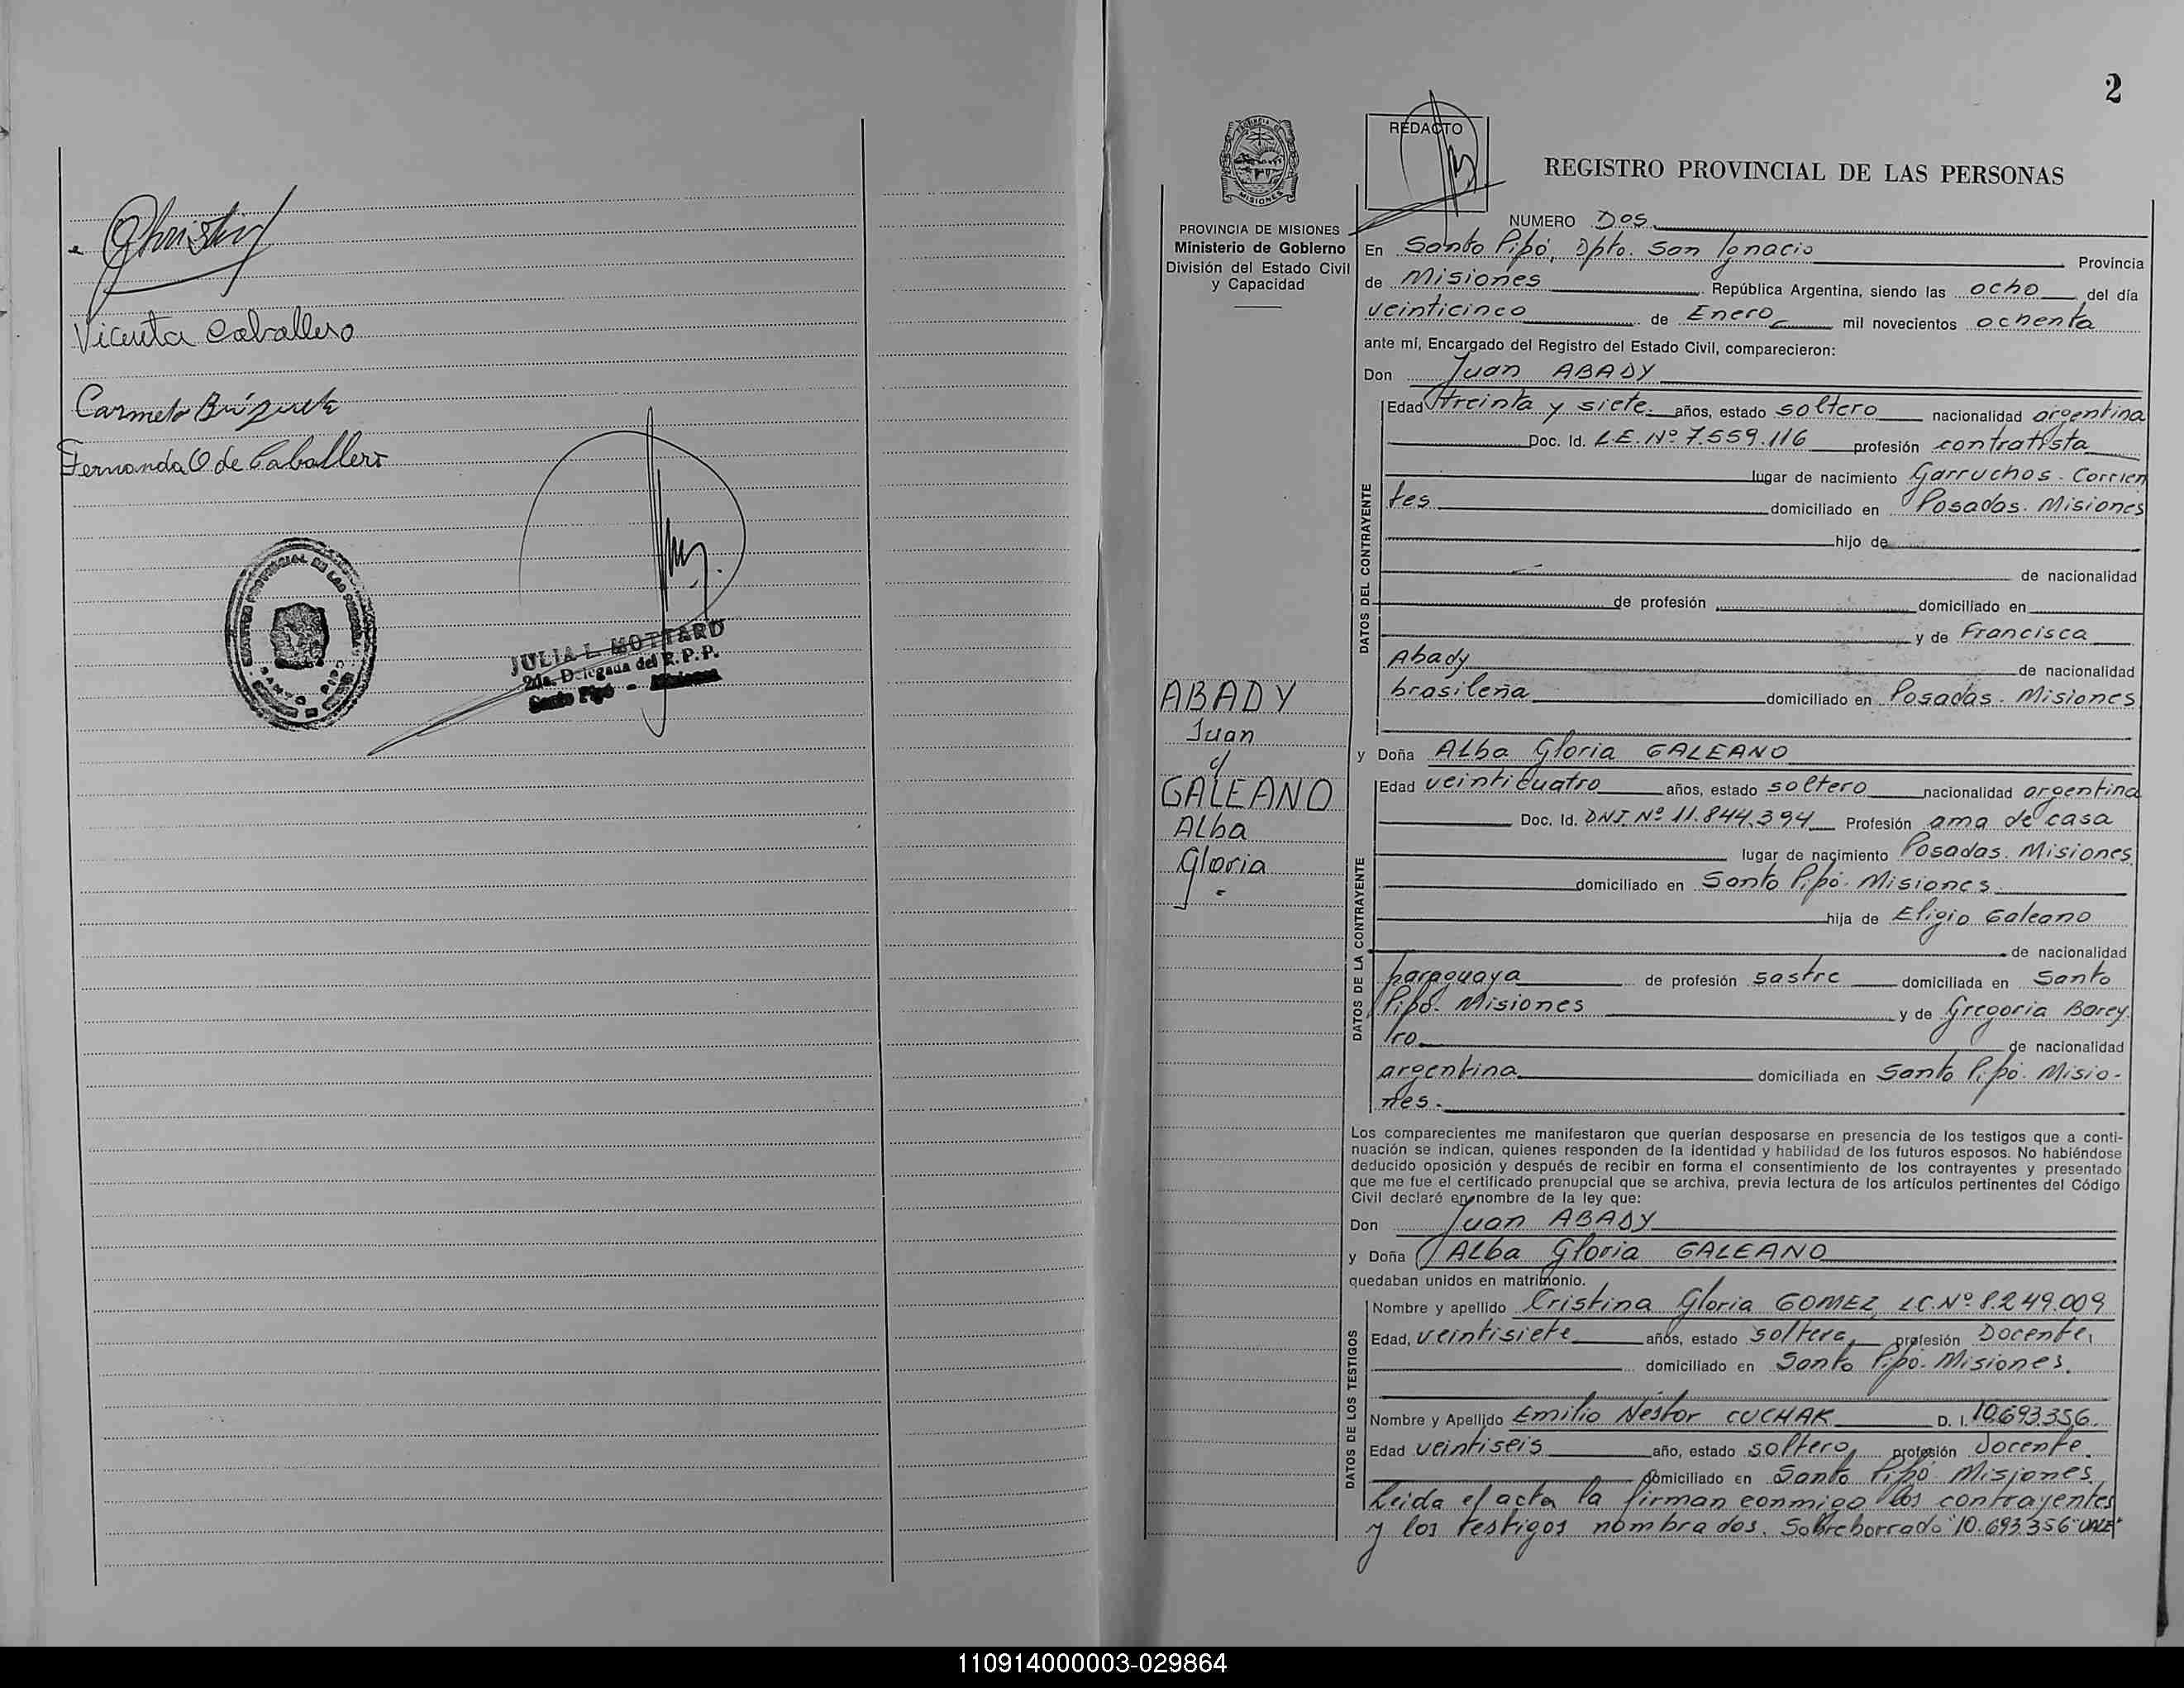 Vicenta Caballero
Carmelo
Fernanda O de Caballero
JULIA L. MOTTARD
2da. Delegada del R.P.P.
Santo Pipó - Misiones
2
MISIONES
REDACTO
REGISTRO PROVINCIAL DE LAS PERSONAS
PROVINCIA DE MISIONES
Ministerio de Gobierno
División del Estado Civil
y Capacidad
NUMERO Dos
En Santo Pipó, Dpto. San Ignacio Provincia
de Misiones República Argentina, siendo las ocho del día
veinticinco de Enero mil novecientos ochenta
ante mí, Encargado del Registro del Estado Civil, comparecieron:
Don Juan ABADY
DATOS DEL CONTRAYENTE
Edad treinta y siete años, estado soltero nacionalidad argentina
Doc. Id. L.E. Nº 7.559.116 profesión contratista
lugar de nacimiento Garruchos - Corrien
tes domiciliado en Posadas. Misiones
hijo de
de nacionalidad
de profesión domiciliado en
y de Francisca
Abady de nacionalidad
brasileña domiciliado en Posadas - Misiones
ABADY
Juan
c/
GALEANO
Alba
Gloria
y Doña Alba Gloria GALEANO
DATOS DE LA CONTRAYENTE
Edad veinticuatro años, estado soltero nacionalidad argentina
Doc. Id. DNI Nº 11.844.394 Profesión ama de casa
lugar de nacimiento Posadas. Misiones
domiciliado en Santo Pipó. Misiones
hija de Eligio Galeano
de nacionalidad
paraguaya de profesión sastre domiciliada en Santo
Pipó. Misiones y de Gregoria Barey
ro de nacionalidad
argentina domiciliada en Santo Pipó. Misio-
nes.
Los comparecientes me manifestaron que querían desposarse en presencia de los testigos que a conti-
nuación se indican, quienes responden de la identidad y habilidad de los futuros esposos. No habiéndose
deducido oposición y después de recibir en forma el consentimiento de los contrayentes y presentado
que me fue el certificado prenupcial que se archiva, previa lectura de los artículos pertinentes del Código
Civil declaré en nombre de la ley que:
Don Juan ABADY
y Doña Alba Gloria GALEANO
quedaban unidos en matrimonio.
DATOS DE LOS TESTIGOS
Nombre y apellido Cristina Gloria GOMEZ, L.C. Nº 8.249.009
Edad, veintisiete años, estado soltera, profesión Docente,
domiciliado en Santo Pipó. Misiones.
Nombre y Apellido Emilio Néstor CUCHAK D. I. 10.693.356.
Edad veintiseis año, estado soltero, profesión docente.
domiciliado en Santo Pipó. Misiones
Leida el acta la firman conmigo los contrayentes
y los testigos nombrados. Sobreborrado "10.693.356" VALE"
110914000003-029864